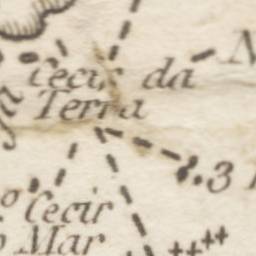 Cecir da
Terra
3
Cecir
Mar